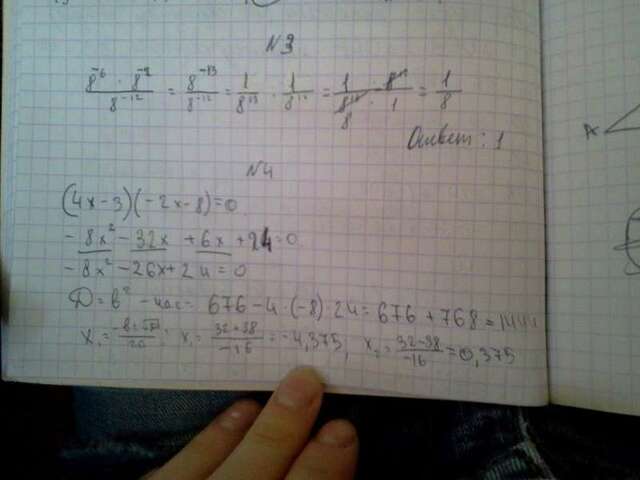 N3
8⁻⁶ · 8⁻⁷ / 8⁻¹² = 8⁻¹³ / 8⁻¹² = 1 / 8¹³ · 1 / 8¹² = 1 · 8 / 8 · 1 = 1 / 8
Ответ: 1
N4
(4x-3)(-2x-8)=0
-8x²-32x+6x+24=0
-8x²-26x+24=0
D=b²-4ac= 676-4·(-8)·24=676+768=1444
x₁= ; x₁= 32+38 / -16 = -4,375, x₂= 32-38 / -16 =0,375
A